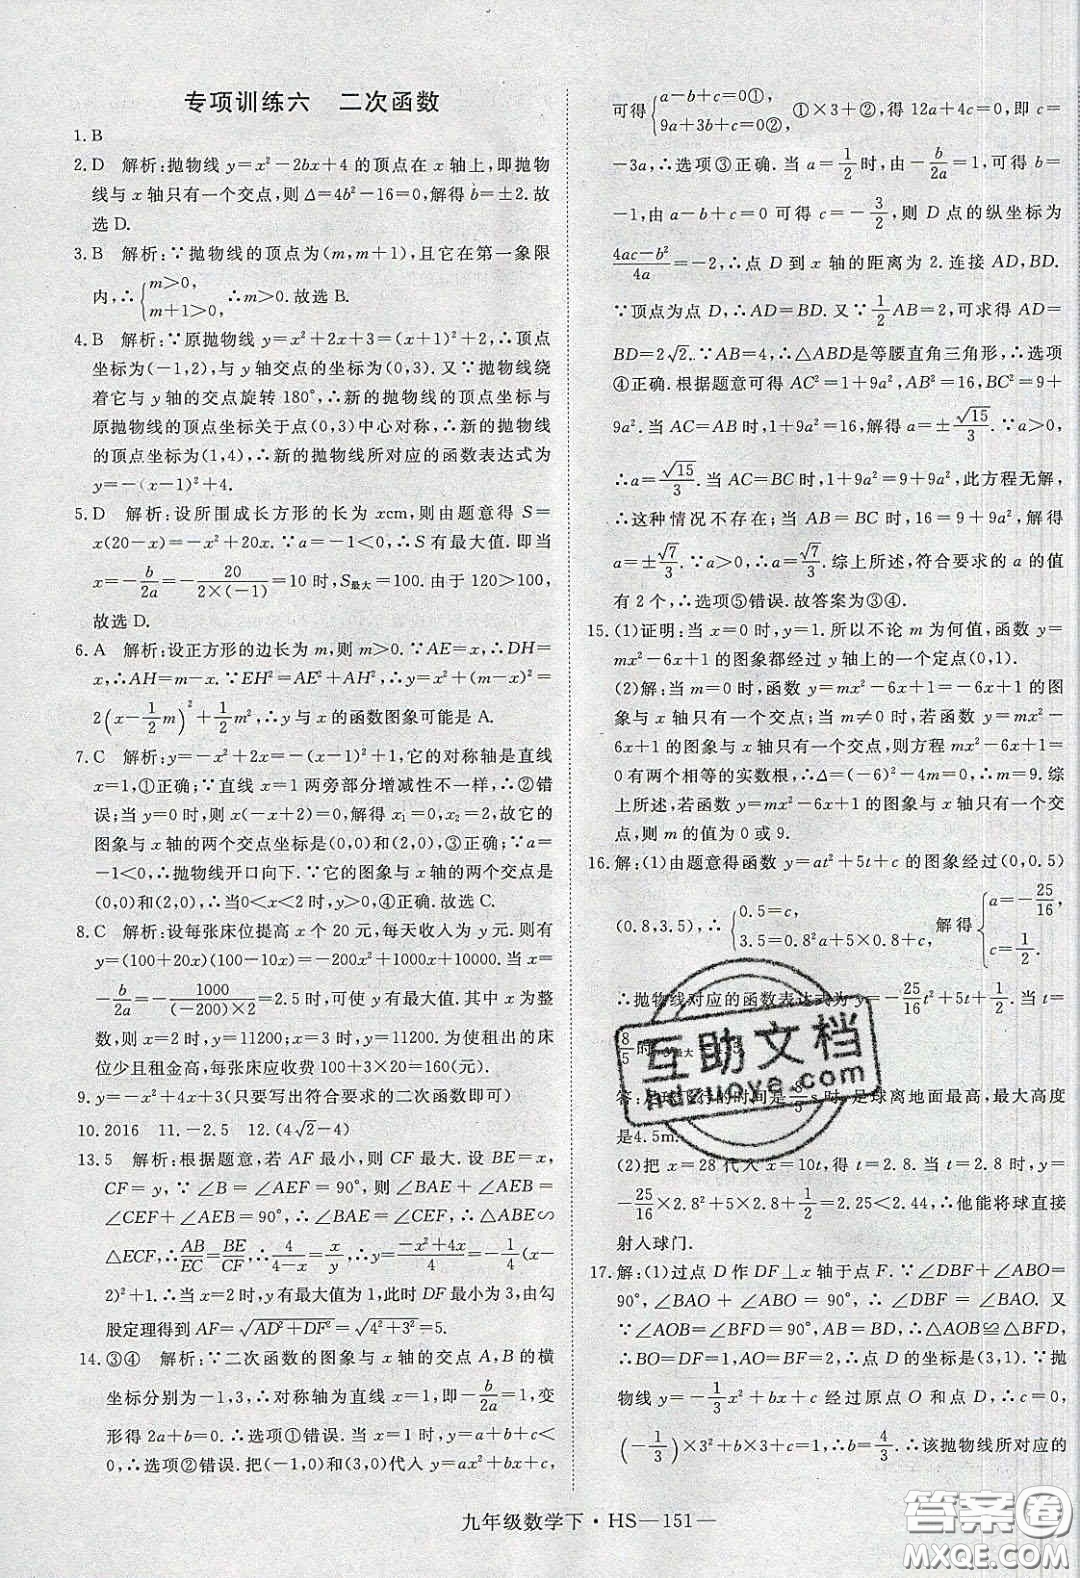 专项训练六　二次函数
1. B
2. D　解析:抛物线 y=x²-2bx+4 的顶点在 x 轴上,即抛物
线与 x 轴只有一个交点,则 Δ=4b²-16=0,解得 b=±2. 故
选 D.
3. B　解析:∵抛物线的顶点为(m,m+1),且它在第一象限
内,∴{m>0, m+1>0, ∴m>0. 故选 B.
4. B　解析:∵原抛物线 y=x²+2x+3=(x+1)²+2,∴顶点
坐标为(-1,2),与 y 轴交点的坐标为(0,3). 又∵抛物线绕
着它与 y 轴的交点旋转 180°,∴新的抛物线的顶点坐标与
原抛物线的顶点坐标关于点(0,3)中心对称,∴新的抛物线
的顶点坐标为(1,4),∴新的抛物线所对应的函数表达式为
y=-(x-1)²+4.
5. D　解析:设所围成长方形的长为 xcm,则由题意得 S=
x(20-x)=-x²+20x. ∵a=-1<0,∴S 有最大值. 即当
x=-b/2a=-20/(2×(-1))=10 时,S最大=100. 由于 120>100,
故选 D.
6. A　解析:设正方形的边长为 m,则 m>0. ∵AE=x,∴DH=
x,∴AH=m-x. ∵EH²=AE²+AH²,∴y=x²+(m-x)²=
2(x-1/2m)²+1/2m²,∴y 与 x 的函数图象可能是 A.
7. C　解析:y=-x²+2x=-(x-1)²+1,它的对称轴是直线
x=1,①正确;∵直线 x=1 两旁部分增减性不一样,∴②错
误;当 y=0 时,则 x(-x+2)=0,解得 x₁=0,x₂=2,故它的
图象与 x 轴的两个交点坐标是(0,0)和(2,0),③正确;∵a=
-1<0,∴抛物线开口向下. ∵它的图象与 x 轴的两个交点是
(0,0)和(2,0),∴当0<x<2 时,y>0,④正确. 故选 C.
8. C　解析:设每张床位提高 x 个 20 元,每天收入为 y 元. 则
有 y=(100+20x)(100-10x)=-200x²+1000x+10000. 当 x=
-b/2a=-1000/((-200)×2)=2.5 时,可使 y 有最大值. 其中 x 为整
数,则 x=2 时,y=11200;x=3 时,y=11200. 为使租出的床
位少且租金高,每张床应收费 100+3×20=160(元).
9. y=-x²+4x+3(只要写出符合要求的二次函数即可)
10. 2016　11. -2.5　12. (4√2-4)
13. 5　解析:根据题意,若 AF 最小,则 CF 最大. 设 BE=x,
CF=y,∵∠B=∠AEF=90°,则∠BAE+∠AEB=
∠CEF+∠AEB=90°,∴∠BAE=∠CEF,∴△ABE∽
△ECF,∴AB/EC=BE/CF,∴4/(4-x)=x/y,∴y=(-x²+4x)/4=-1/4(x-
2)²+1. ∴x=2 时,y 有最大值为 1,此时 DF 最小为 3,由勾
股定理得到 AF=√(AD²+DF²)=√(4²+3²)=5.
14. ③④　解析:∵二次函数的图象与 x 轴的交点 A,B 的横
坐标分别为-1,3,∴对称轴为直线 x=1,即-b/2a=1,变
形得 2a+b=0,∴选项①错误. 当 x=1 时,y=a+b+c<
0,∴选项②错误. 把(-1,0)和(3,0)代入 y=ax²+bx+c,
可得{a-b+c=0①, 9a+3b+c=0②, ①×3+②,得 12a+4c=0,即 c=
-3a,∴选项③正确. 当 a=1/2时,由-b/2a=1,可得 b=
-1,由 a-b+c=0 可得 c=-3/2,则 D 点的纵坐标为
(4ac-b²)/4a=-2,∴点 D 到 x 轴的距离为 2. 连接 AD,BD.
∵顶点为点 D,∴AD=BD. 又∵1/2AB=2,∴AD=
BD=2√2. ∵AB=4,∴△ABD是等腰直角三角形,∴选项
④正确. 根据题意可得 AC²=1+9a²,AB²=16,BC²=9+
9a². 当 AC=AB 时,1+9a²=16,解得 a=±√15/3. ∵a>0,
∴a=√15/3. 当 AC=BC 时,1+9a²=9+9a²,此方程无解,
∴这种情况不存在;当 AB=BC 时,16=9+9a²,解得
a=±√7/3. ∵a>0,∴a=√7/3. 综上所述,符合要求的 a 的值
有 2 个,∴选项⑤错误. 故答案为③④.
15. (1)证明:当 x=0 时,y=1. 所以不论 m 为何值,函数 y=
mx²-6x+1 的图象都经过 y 轴上的一个定点(0,1).
(2)解:当 m=0 时,函数 y=mx²-6x+1 的图
象与 x 轴只有一个交点;当 m≠0 时,若函数 y=mx²-
6x+1 的图象与 x 轴只有一个交点,则方程 mx²-6x+1=
0 有两个相等的实数根,∴Δ=(-6)²-4m=0,∴m=9. 综
上所述,若函数 y=mx²-6x+1 的图象与 x 轴只有一个交
点,则 m 的值为 0 或 9.
16. 解:(1)由题意得函数 y=at²+5t+c 的图象经过(0,0.5)
(0.8,3.5),∴{0.5=c, 3.5=0.8²a+5×0.8+c, 解得{a=-25/16, c=1/2.
∴抛物线对应的函数表达式为 y=-25/16t²+5t+1/2. 当 t=
8/5时,
答:足球飞行的时间是8/5s 时,足球离地面最高,最大高度
是4.5m.
(2)把 x=28 代入 x=10t,得 t=2.8. 当 t=2.8 时,y=
-25/16×2.8²+5×2.8+1/2=2.25<2.44,∴他能将球直接
射入球门.
17. 解:(1)过点 D 作 DF⊥x 轴于点 F. ∵∠DBF+∠ABO=
90°,∠BAO+∠ABO=90°,∴∠DBF=∠BAO. 又
∵∠AOB=∠BFD=90°,AB=BD,∴△AOB≌△BFD,
∴BO=DF=1,AO=BF=2,∴点 D 的坐标是(3,1). ∵抛
物线 y=-1/3x²+bx+c 经过原点 O 和点 D,∴c=0,
(-1/3)×3²+3b+c=1,∴b=4/3. ∴该抛物线所对应的
九年级数学下·HS—151—
互助文档
hdzuoye.com
答案圈
MXQE.COM